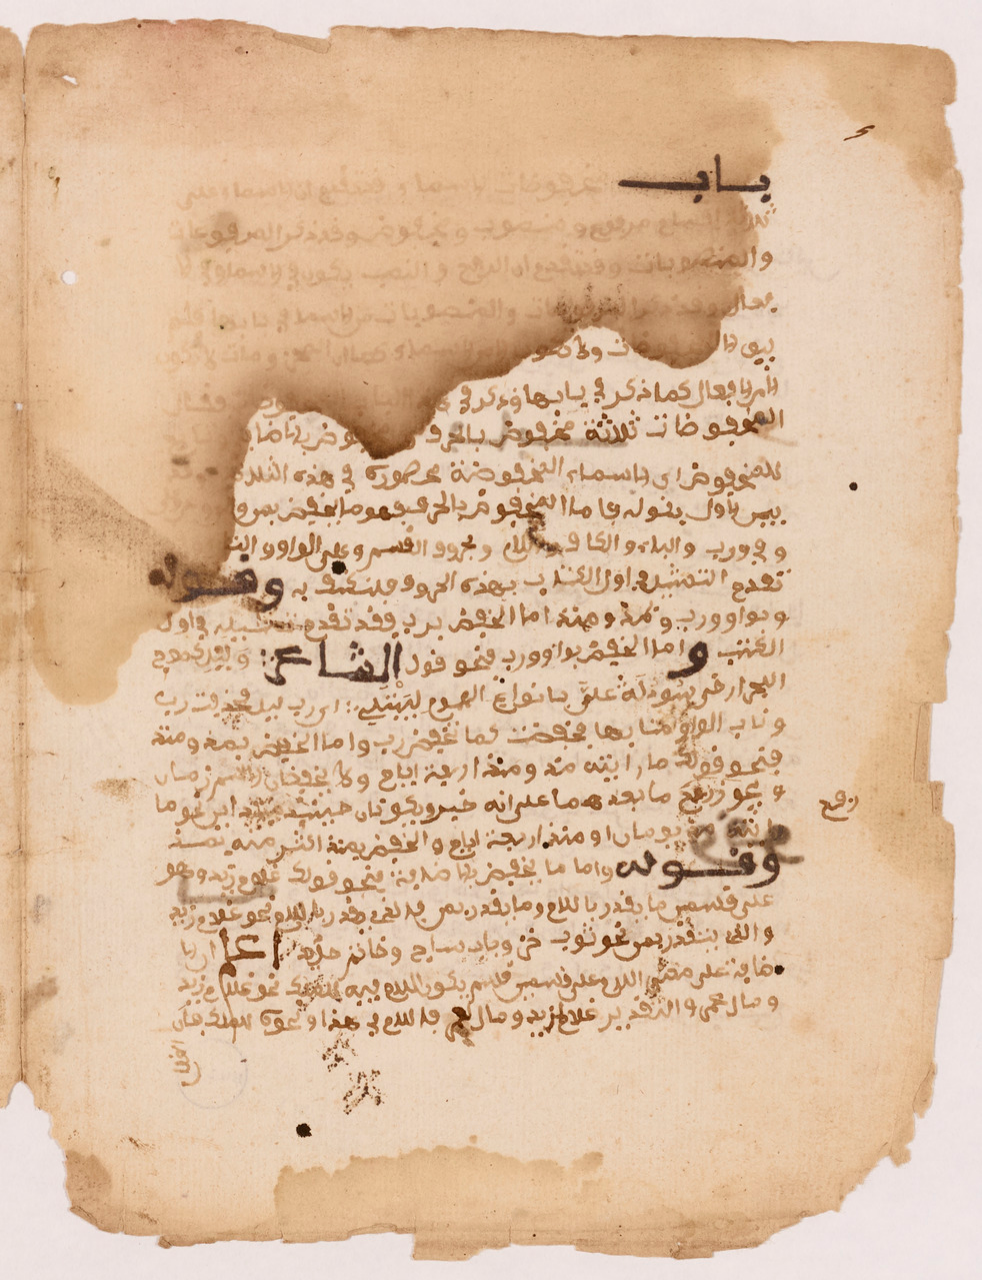 باب مخفوضات الاسماء وقد تقدم ان الاسماء على
ثلاثة اقسام مرفوع ومنصوب ومخفوض وقد ذكر المرفوعات
والمنصوبات وقد تقدم ان الرفع والنصب يكون في الاسماء وفي الا
فعال وقد ذكر المرفوعات والمنصوبات من الاسماء في بابها فلم
يبق الا
الا في الافعال كما ذكر في بابها وذكر في
المخفوضات ثلاثة مخفوض بالحرف ومخفوض بالاضا
للمخفوض اي الاسماء المخفوضة محصورة في هذه الثلا
بين الاول بقوله فاما المخفوض بالحرف فهو ما يخفض بمن و
وفي ورب والباء والكاف واللام وحروف القسم وهي الواو و
تقدم التمثيل في اول الكتاب بهذه الحروف فلتكتف به وقوله
وبواو ورب وبمذ ومنذ اما الخفض برب فقد تقدم تمثيله في اول
الكتب واما الخفض بواو ورب فنحو قول الشاعر وليل كموج
البحر ارخى سدوله علي بانواع الهموم ليبتلي اي رب ليل فحذفت رب
وناب الواو منابها فخفضت كما تخفض رب واما الخفض بمذ ومنذ
فنحو قولك ما رايته مذ ومنذ اربعة ايام ولا يخفضان الا اسم زمان
ويجوز رفع ما بعدهما على انه خبر ويكونان حينئذ مبتدا اين نحو ما
رفع
رايته مذ يومان او منذ اربعة ايام والخفض بمنذ اكثر منه بمذ
وقوله واما ما يخفض بالاضافة فنحو قولك غلام زيد وهو
على قسمين ما يقدر باللام وما يقدر بمن فالذي يقدر باللام نحو غلام زيد
والذي يتقدر بمن نحو ثوب خز وباب ساج وخاتم حديد اعلم ان الا
ضافة على معنى اللام على قسمين قسم يكون اللام فيه للملك نحو غلام زيد
ومال عمرو والتقدير غلام لزيد ومال لعمرو فاللام في هذا ونحوه للملك فان